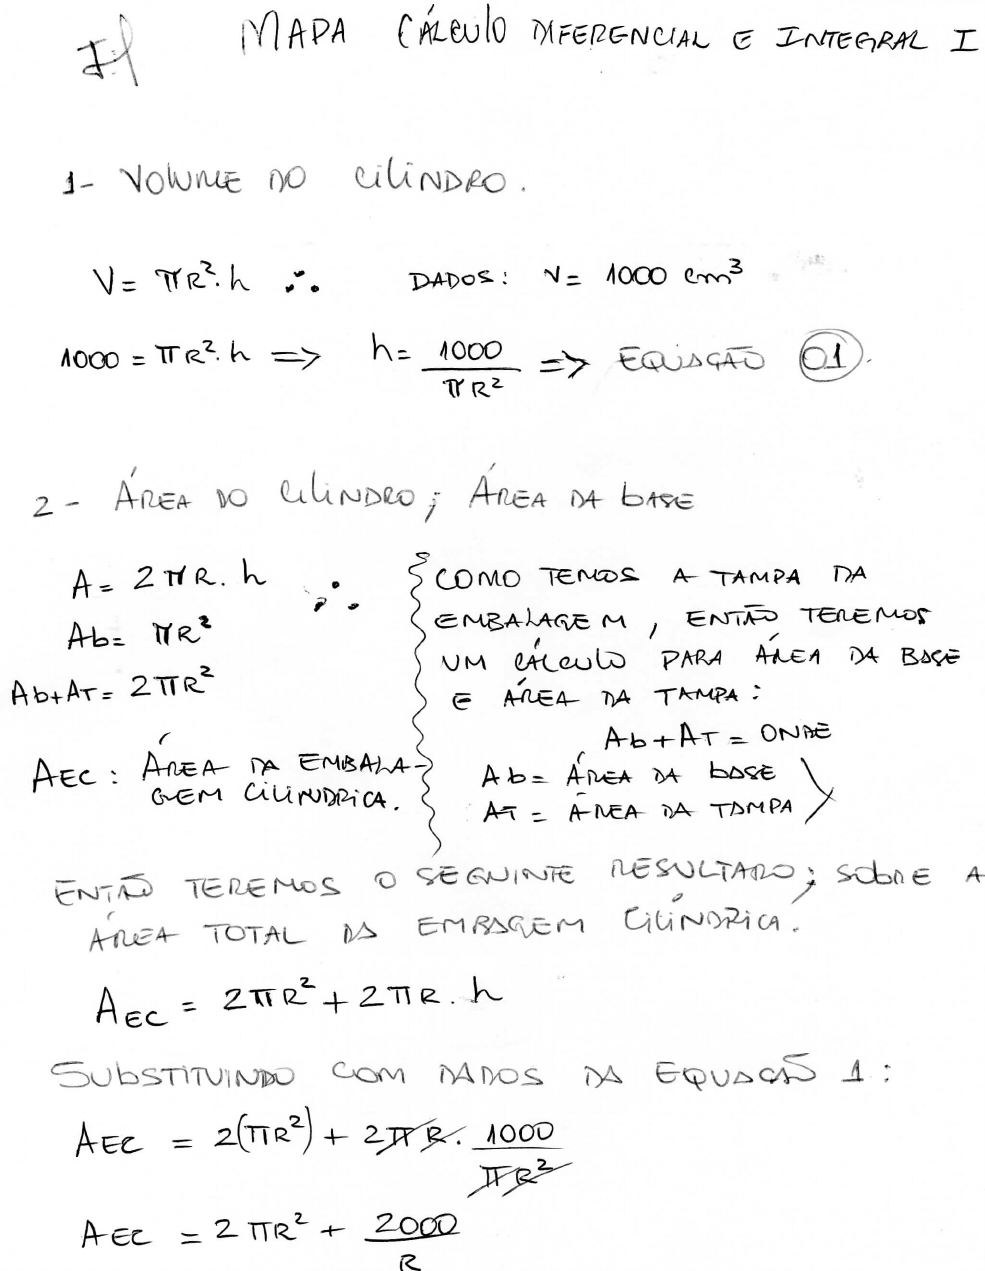 MAPA CÁLCULO DIFERENCIAL E INTEGRAL I
1- VOLUME DO CILINDRO.
V= πR². h ∴ DADOS: V= 1000 cm³
1000 = πR². h => h= 1000/πR² => EQUAÇÃO 01.
2 - ÁREA DO CILINDRO; ÁREA DA BASE
A = 2πR. h ∴
Ab= πR²
Ab+AT= 2πR²
AEC : ÁREA DA EMBALA-
GEM CILINDRICA.
COMO TEMOS A TAMPA DA
EMBALAGEM, ENTÃO TEREMOS
UM CÁLCULO PARA ÁREA DA BASE
E ÁREA DA TAMPA :
Ab+AT = ONDE
Ab= ÁREA DA BASE
AT = ÁREA DA TAMPA
ENTÃO TEREMOS O SEGUINTE RESULTADO; SOBRE A
ÁREA TOTAL DA EMBAGEM CILÍNDRICA.
AEC = 2πR² + 2πR. h
SUBSTITUINDO COM DADOS DA EQUAÇÃO 1:
AEC = 2(πR²) + 2πR. 1000/πR²
AEC = 2πR² + 2000/R